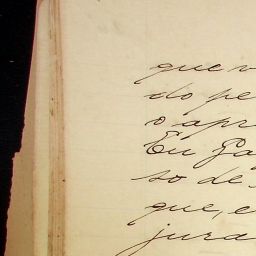 que v
do pe
o apr
Eu Ga
so de
que, e
jura